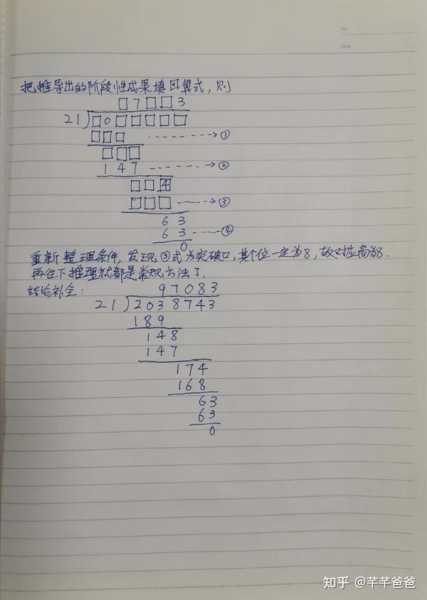 把推导出的阶段性成果填回算式,则
□7□□3
21)□0□□□□□
□□□ ①
□□□
147 ②
□□4
□□□ ③
63
63 ④
0
重新整理条件,发现③式为突破口,其个位一定为8,故商为8.
再往下推理就都是常规方法了.
97083
21)2038743
189
148
147
174
168
63
63
0
知乎 @芊芊爸爸